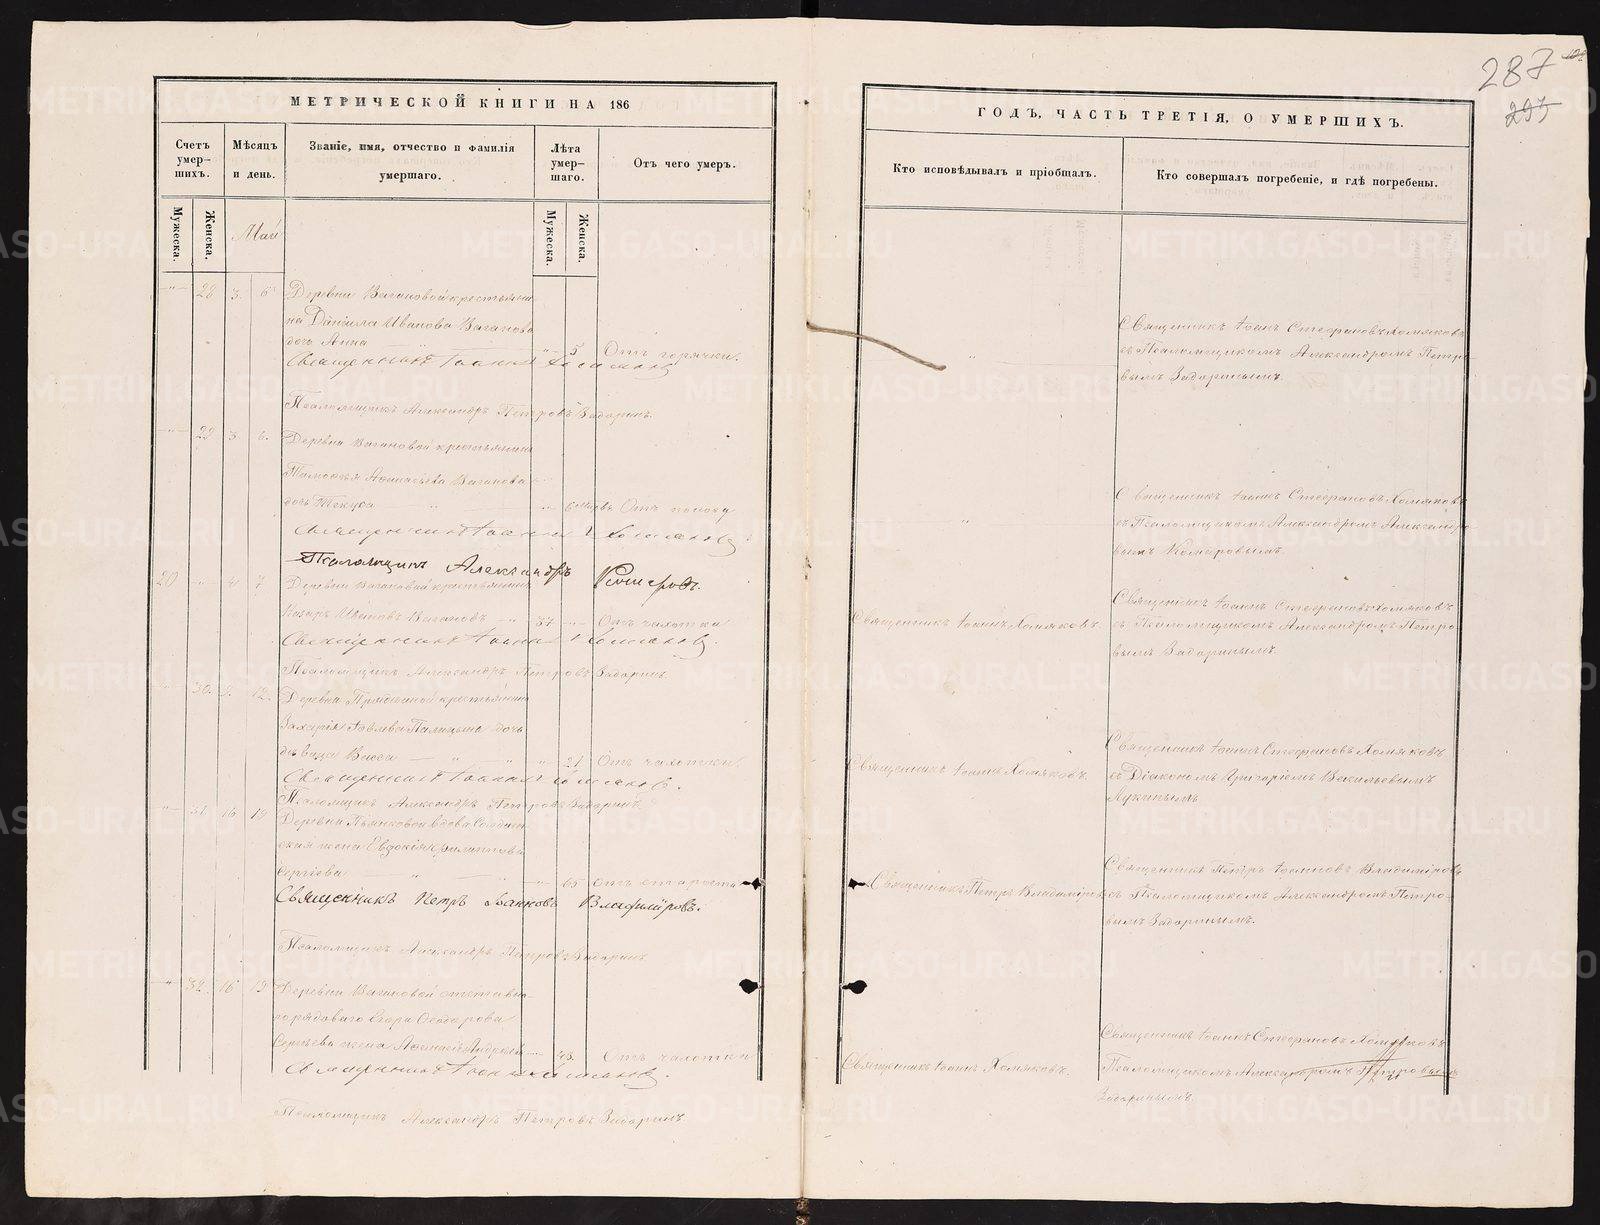 287
293
МЕТРИЧЕСКОЙ КНИГИ НА 186
ГОДЪ, ЧАСТЬ ТРЕТІЯ, О УМЕРШИХЪ.
Счетъ умер-
шихъ.
Мѣсяцъ
и день.
Званіе, имя, отчество и фамилія
умершаго.
Лѣта
умер-
шаго.
Отъ чего умеръ.
Кто исповѣдывалъ и пріобщалъ.
Кто совершалъ погребеніе, и гдѣ погребены.
Мужеска.
Женска.
Май
Мужеска.
Женска.
28 3 6 Деревни Вагановой крестьяни-
на Даніила Иванова Ваганова
дочь Анна 5 Отъ горячки.
Священникъ Іоаннъ Хомяковъ
Псаломщикъ Александръ Петровъ Задоринъ.
Священникъ Іоаннъ Стефановъ Хомяковъ
съ Псаломщикомъ Александромъ Петро-
вымъ Задоринымъ.
29 3 6. Деревни Вагановой крестьянина
Тимофея Афанасьева Ваганова
дочь Отъ поносу
Священникъ Іоаннъ Хомяковъ
Псаломщикъ Александръ Комаровъ.
Священникъ Іоаннъ Стефановъ Хомяковъ
съ Псаломщикомъ Александромъ Александро-
вымъ Комаровымъ.
20 4 7 Деревни Вагановой крестьянинъ
Назаръ Ивановъ Вагановъ 37 Отъ чахотки
Священникъ Іоаннъ Хомяковъ.
Псаломщикъ Александръ Петровъ Задоринъ.
Священникъ Іоаннъ Хомяковъ.
Священникъ Іоаннъ Стефановъ Хомяковъ
съ Псаломщикомъ Александромъ Петро-
вымъ Задоринымъ.
30. 9. 12. Деревни крестьянина
Захарія дочь
дѣвица Васса 21 Отъ чахотки.
Священникъ Іоаннъ Хомяковъ.
Псаломщикъ Александръ Петровъ Задоринъ.
Священникъ Іоаннъ Хомяковъ.
Священникъ Іоаннъ Стефановъ Хомяковъ
съ Діакономъ Григоріемъ Васильевымъ
31 16 19 Деревни Пьянковой вдова Солдат-
ская жена Евдокія Филиппова
Сергѣева 65 Отъ старости
Священникъ Петръ Іоанновъ Владиміровъ.
Псаломщикъ Александръ Петровъ Задоринъ
Священникъ Петръ Владиміровъ
Священникъ Петръ Іоанновъ Владиміровъ
съ Псаломщикомъ Александромъ Петро-
вымъ Задоринымъ.
32. 16 19 Деревни Вагановой отставна-
го рядоваго Егора Федорова
Сергѣева жена 48. Отъ чахотки
Священникъ Іоаннъ Хомяковъ.
Псаломщикъ Александръ Петровъ Задоринъ.
Священникъ Іоаннъ Хомяковъ.
Священникъ Іоаннъ Стефановъ Хомяковъ
Псаломщикомъ Александромъ Петровымъ
Задоринымъ.
METRIKI.GASO-URAL.RU